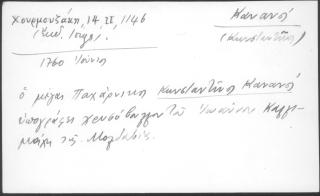 Χουρμουζάκη, 14 ΙΙ, 1146
Κανανό
(Κωνσταντῖνος)
1760 Ἰούνιος
ὁ μέγας Παχάρνικος Κωνσταντῖνος Κανανό
ὑπογράφει χρυσόβουλλον τοῦ Ἰωάννου Καλλι-
μάχη τῆς Μολδαβίας.